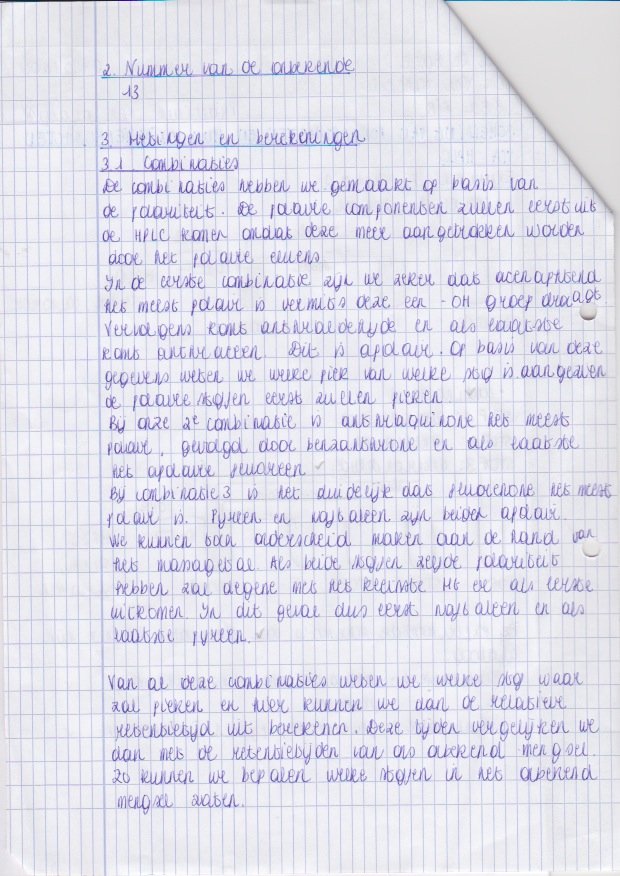 2. Nummer van de onbekende
13
3. Metingen en berekeningen
3.1 Combinaties
De combinaties hebben we gemaakt op basis van
de polariteit. De polaire componenten zullen eerst uit
de HPLC komen omdat deze meer aangetrokken worden
door het polaire eluens.
In de eerste combinatie zijn we zeker dat acenaphtenol
het meest polair is vermits deze een -OH groep draagt.
Vervolgens komt anthraldehyde en als laatste
komt anthraceen. Dit is apolair. Op basis van deze
gegevens weten we welke piek van welke stof is aangezien
de polaire stoffen eerst zullen pieken.
Bij onze 2e combinatie is anthraquinone het meest
polair, gevolgd door benzanthrone en als laatste
het apolaire fluoreen
Bij combinatie 3 is het duidelijk dat fluorenone het meest
polair is. Pyreen en naftaleen zijn beiden apolair.
We kunnen toch onderscheid maken aan de hand van
het massagetal. Als beide stoffen zelfde polariteit
hebben zal degene met het kleinste Mt er als eerste
uitkomen. In dit geval dus eerst naftaleen en als
laatste pyreen.
Van al deze combinaties weten we welke stof waar
zal pieken en hier kunnen we dan de relatieve
retentietijd uit berekenen. Deze tijden vergelijken we
dan met de retentietijden van ons onbekend mengsel.
Zo kunnen we bepalen welke stoffen in het onbekend
mengsel zaten.